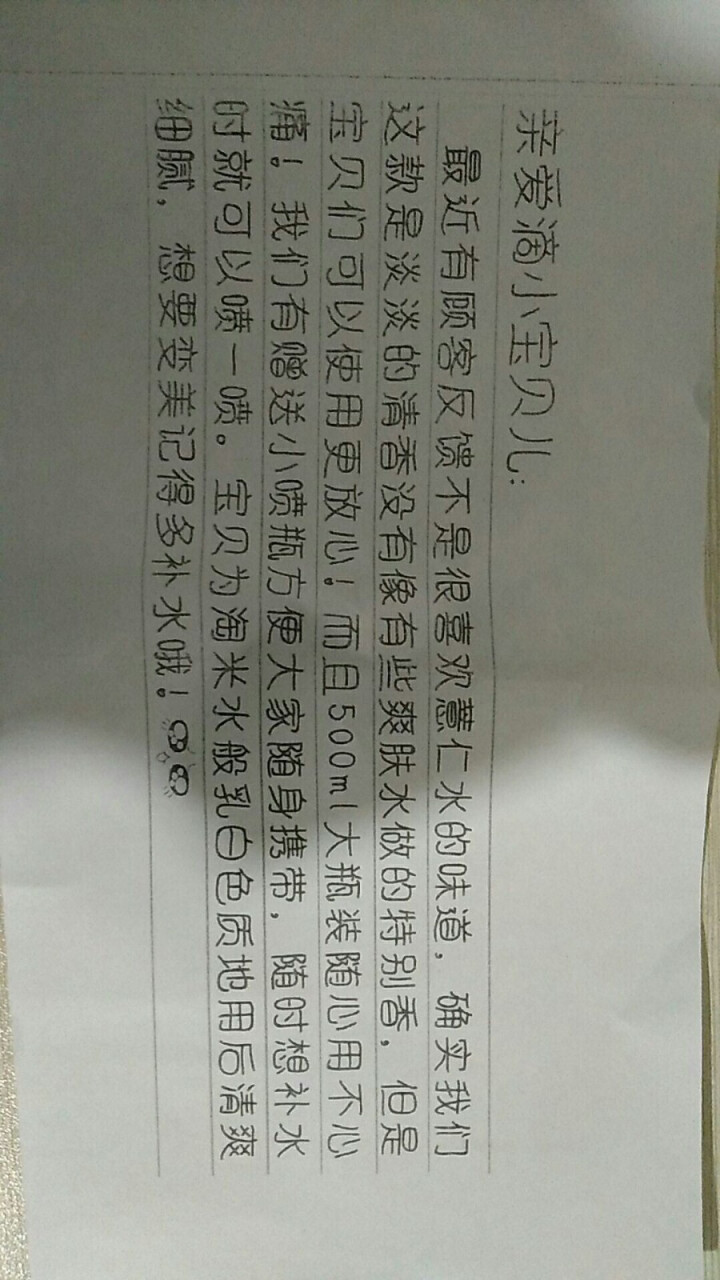 亲爱滴小宝贝儿:
最近有顾客反馈不是很喜欢薏仁水的味道，确实我们
这款是淡淡的清香没有像有些爽肤水做的特别香，但是
宝贝们可以使用更放心！而且500ml大瓶装随心用不心
痛！我们有赠送小喷瓶方便大家随身携带，随时想补水
时就可以喷一喷。宝贝为淘米水般乳白色质地用后清爽
细腻，想要变美记得多补水哦！